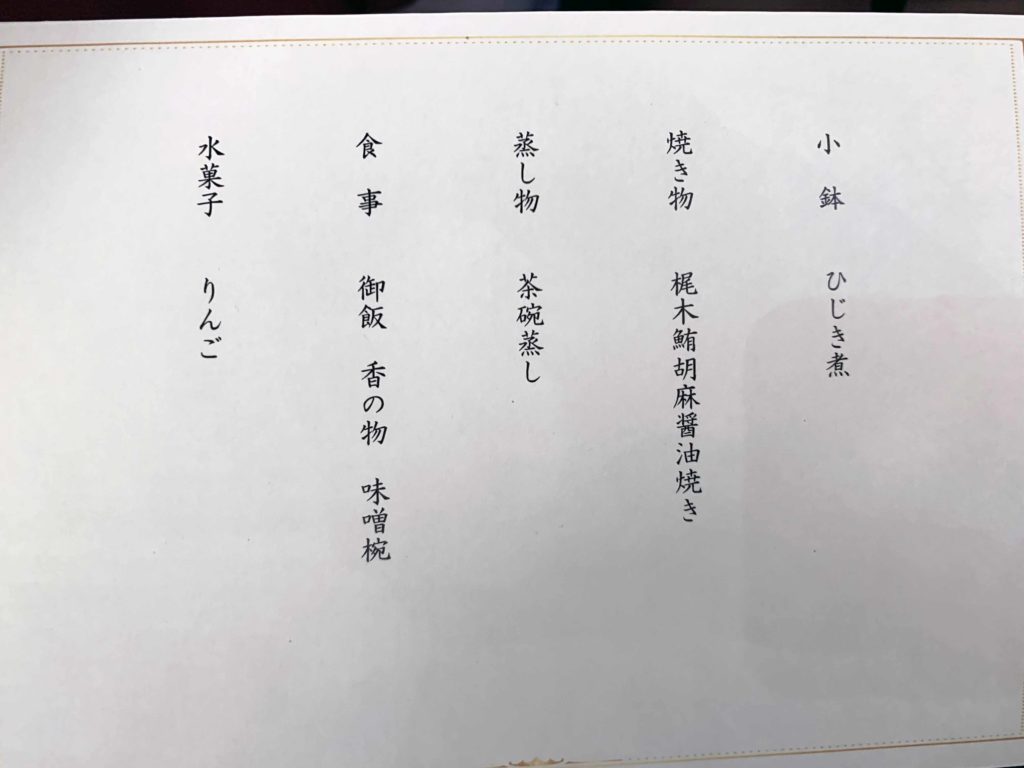 小 鉢 ひじき煮
焼き物 梶木鮪胡麻醤油焼き
蒸し物 茶碗蒸し
食 事 御飯 香の物 味噌椀
水菓子 りんご